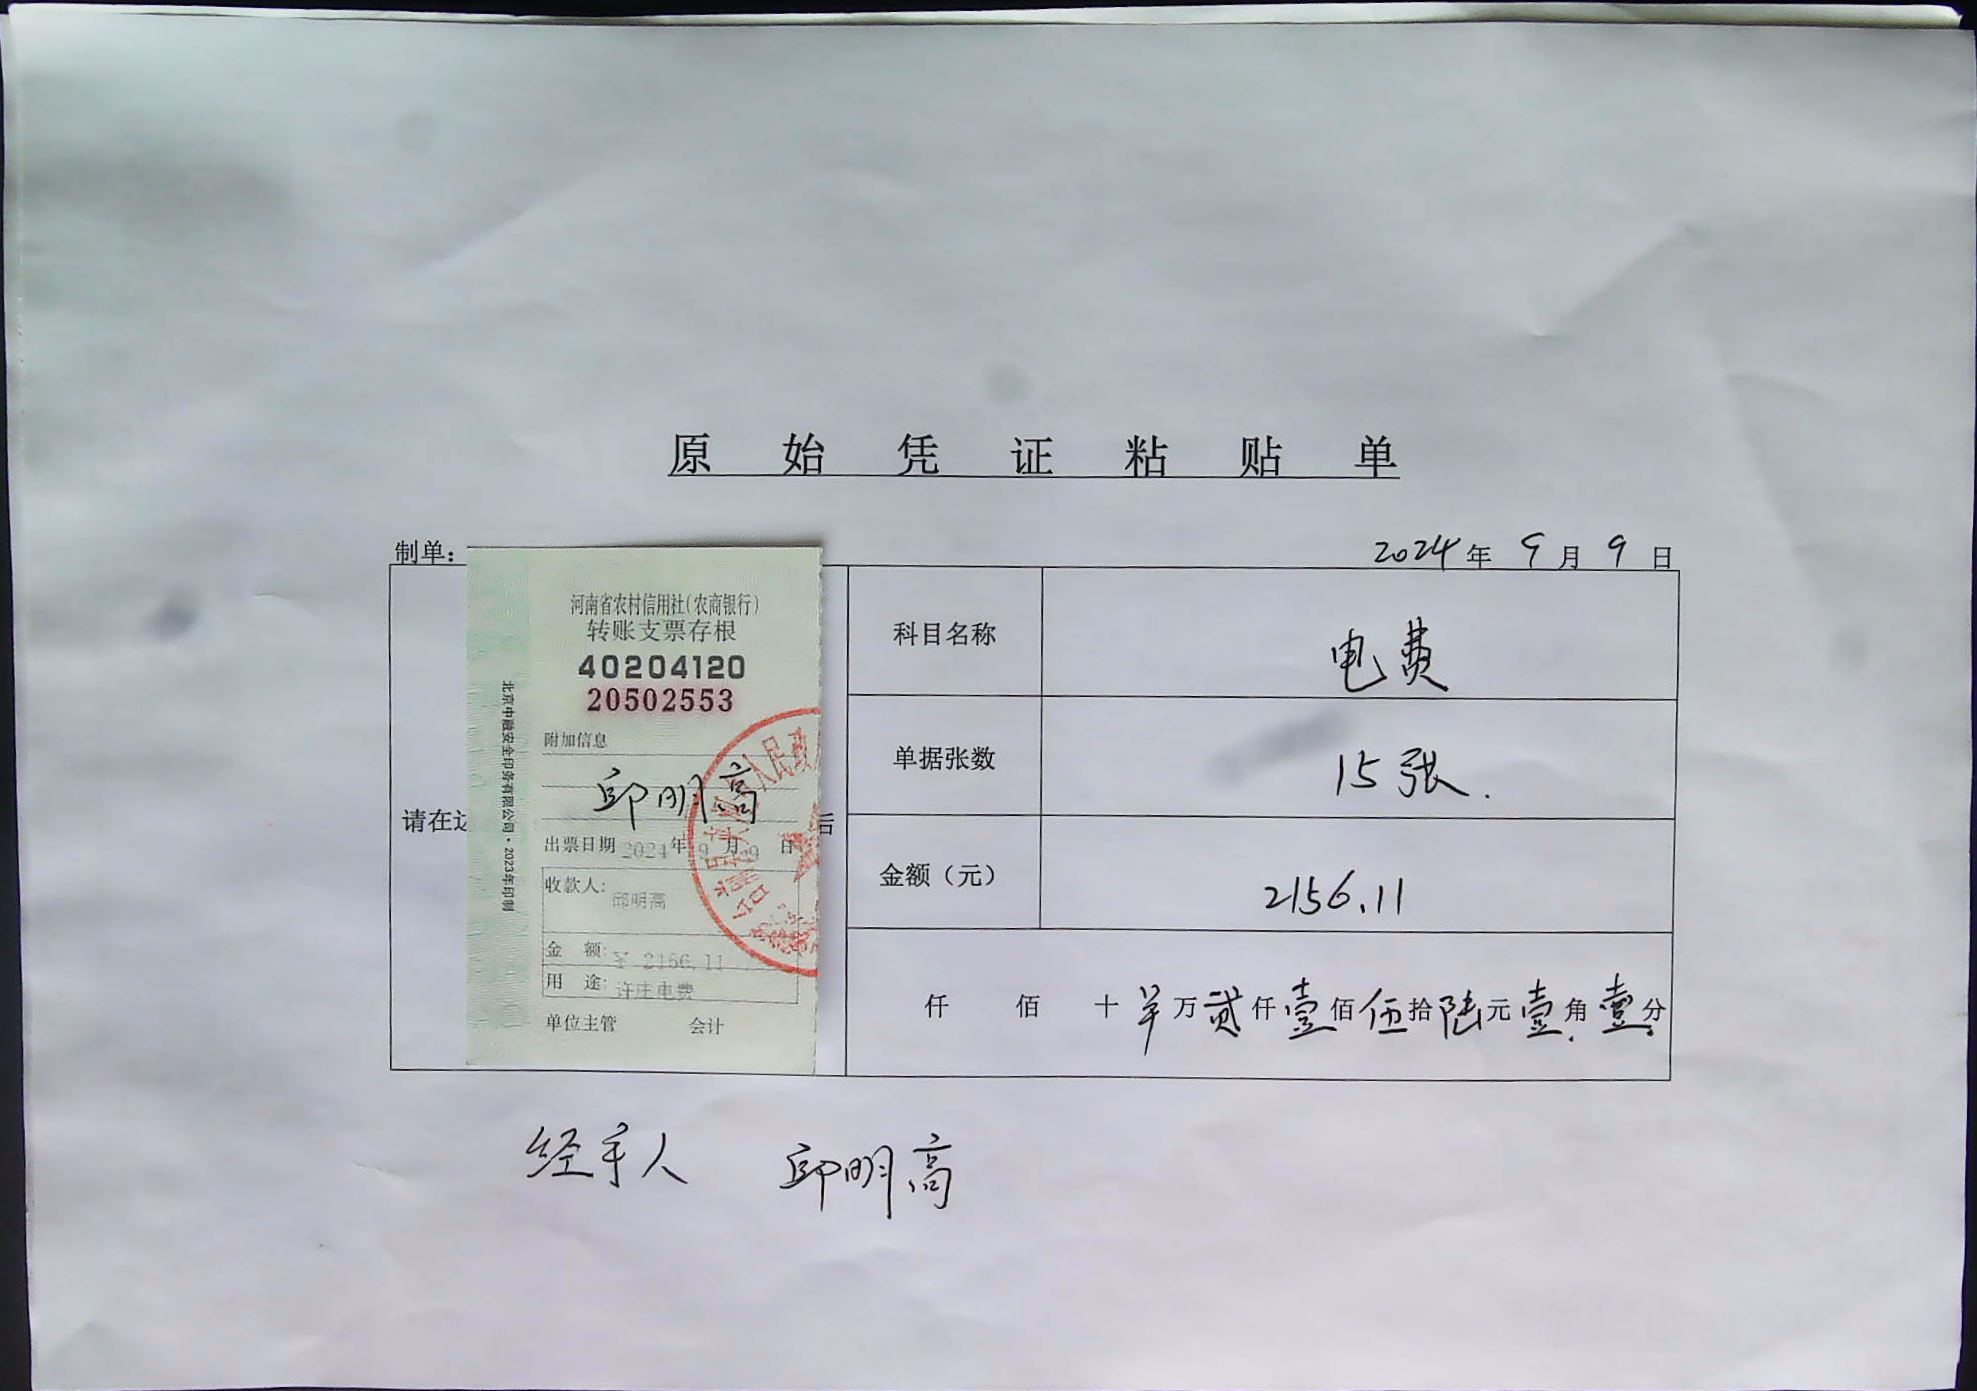 原始凭证粘贴单
制单：
2024年9月9日
河南省农村信用社(农商银行)
转账支票存根
40204120
20502553
附加信息
邱明高
出票日期 2024年9月9日
收款人：邱明高
金 额：¥ 2156.11
用 途：许庄电费
单位主管 会计
北京中融安全印务有限公司·2023年印制
请在这
后
科目名称 电费
单据张数 15张.
金额（元） 2156.11
仟 佰 十 万贰仟壹佰伍拾陆元壹角壹分
经手人 邱明高